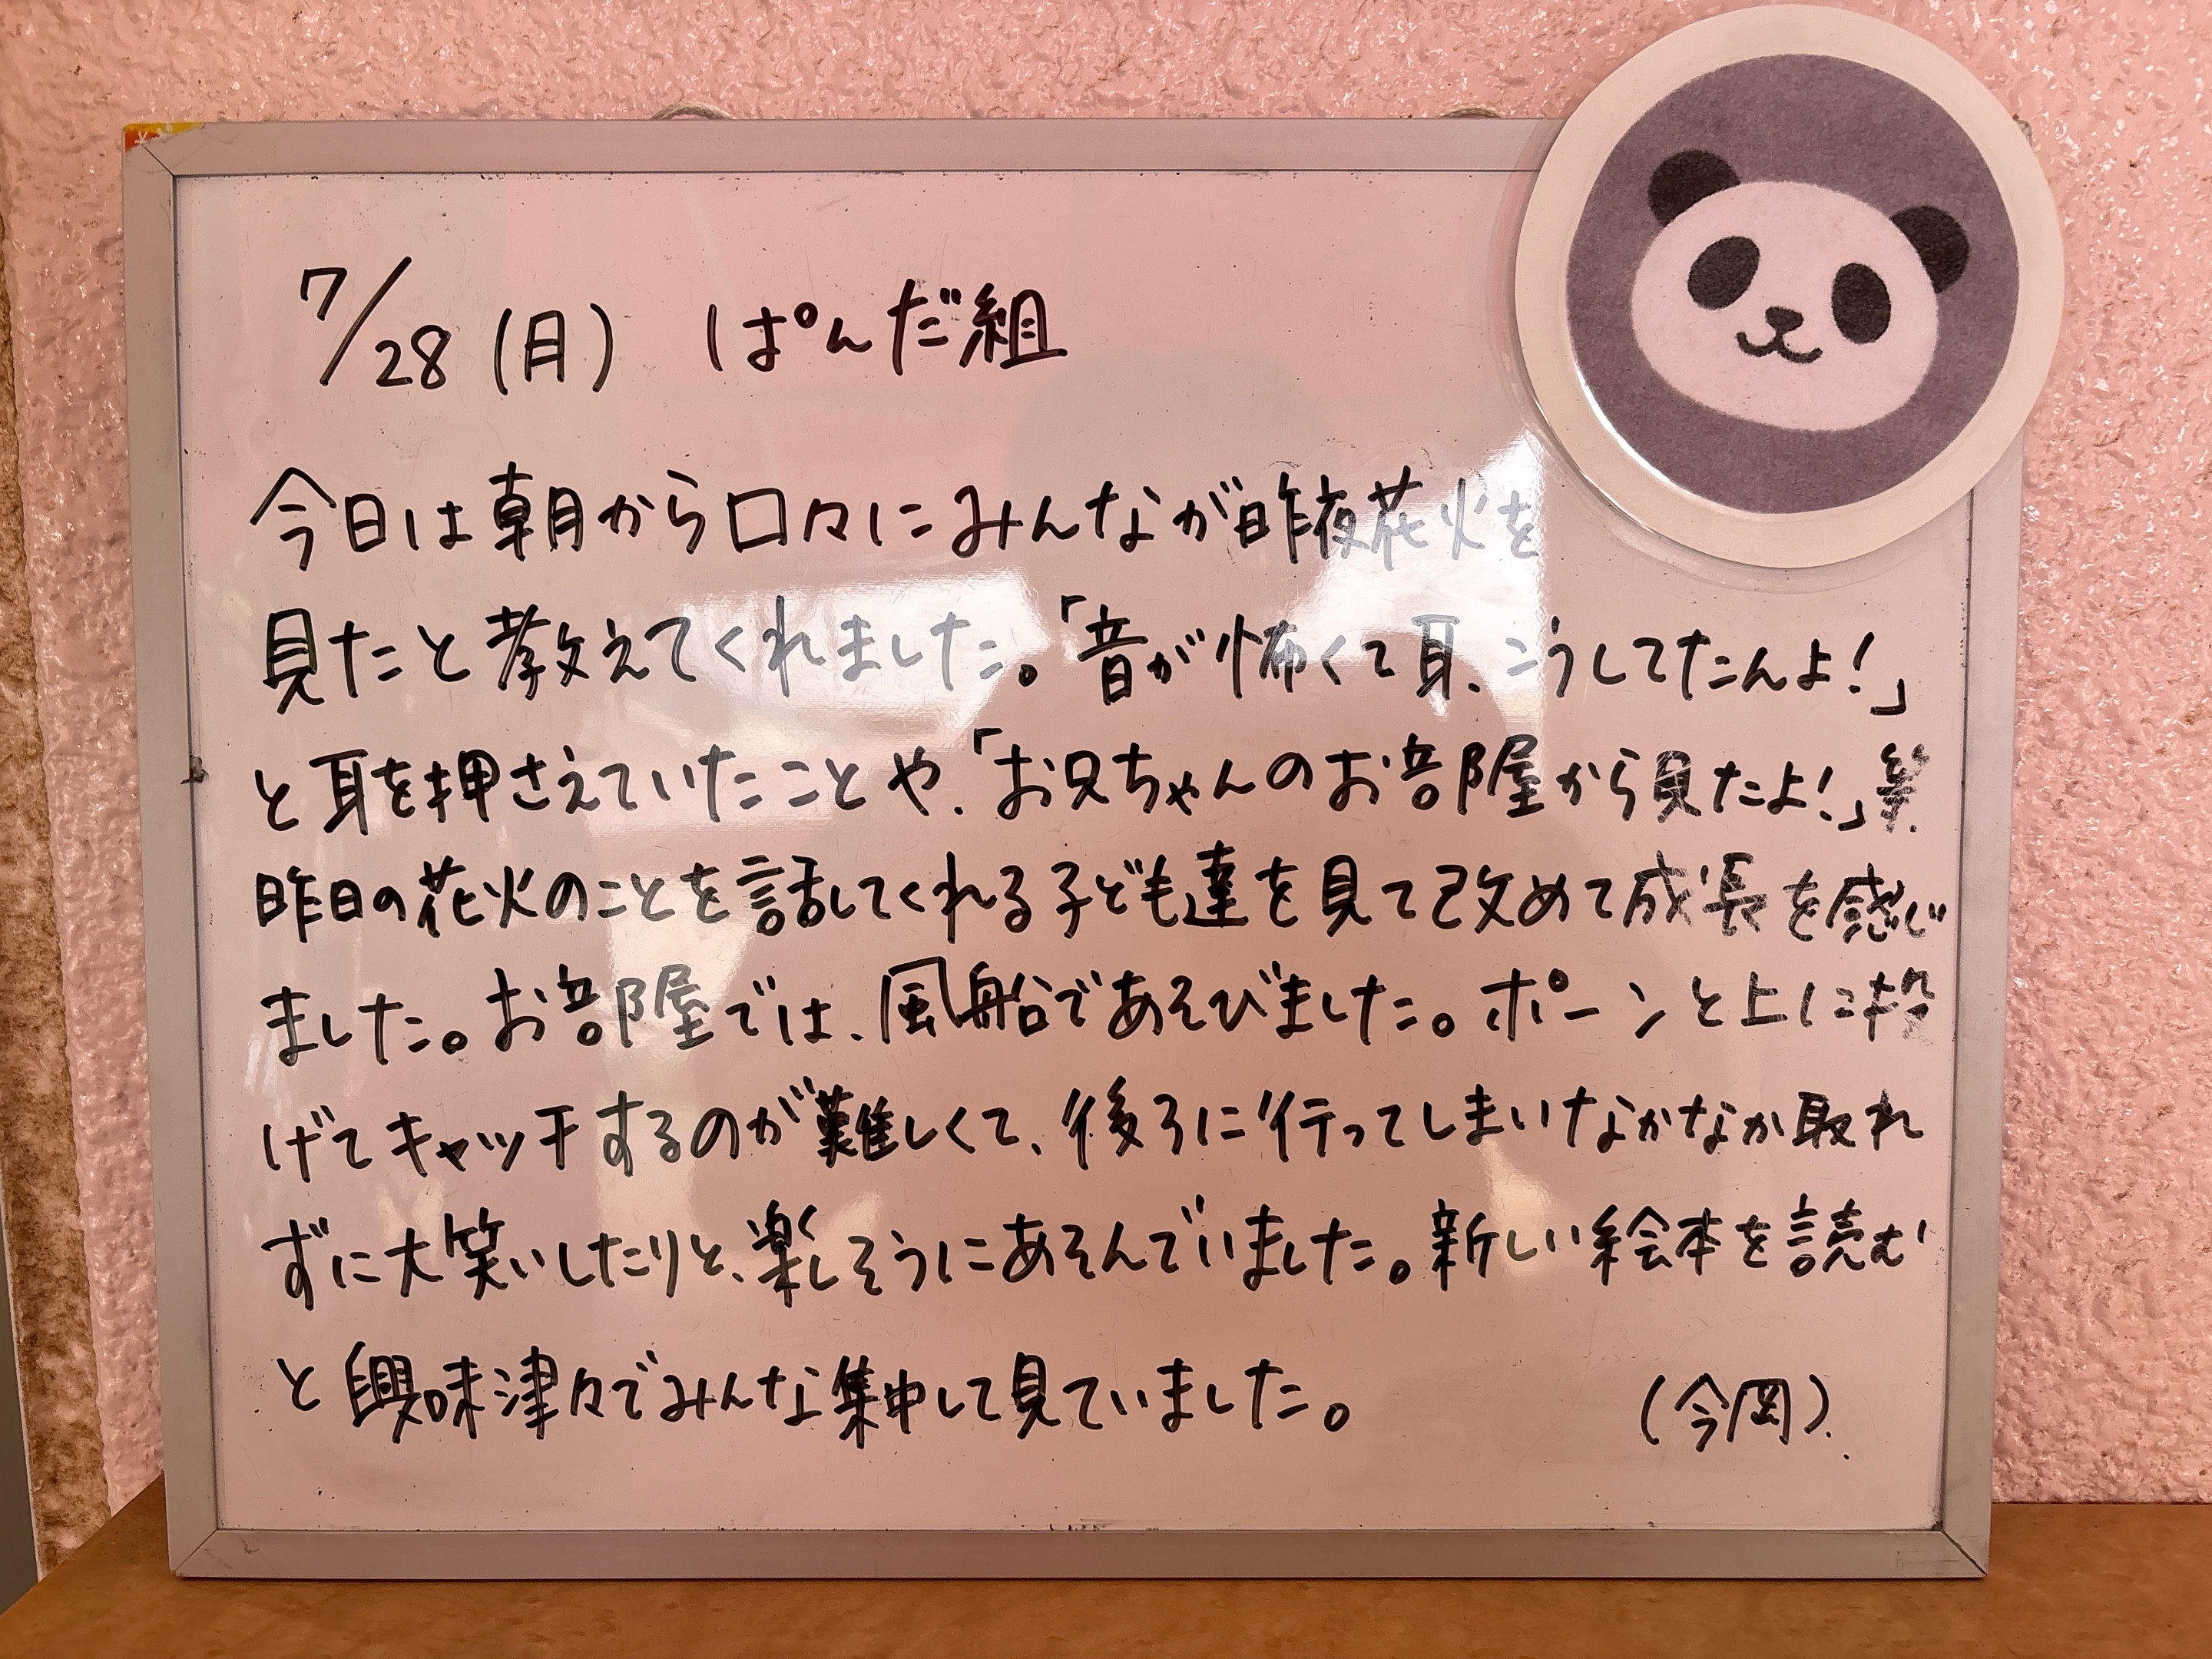 7/28(月) ぱんだ組
今日は朝から口々にみんなが昨夜花火を
見たと教えてくれました。「音が怖くて耳、こうしてたんよ!」
と耳を押さえていたことや、「お兄ちゃんのお部屋から見たよ!」等
昨日の花火のことを話してくれる子ども達を見て改めて成長を感じ
ました。お部屋では、風船であそびました。ポーンと上に投
げてキャッチするのが難しくて、後ろに行ってしまいなかなか取れ
ずに大笑いしたりと、楽しそうにあそんでいました。新しい絵本を読む
と興味津々でみんな集中して見ていました。 (今岡)